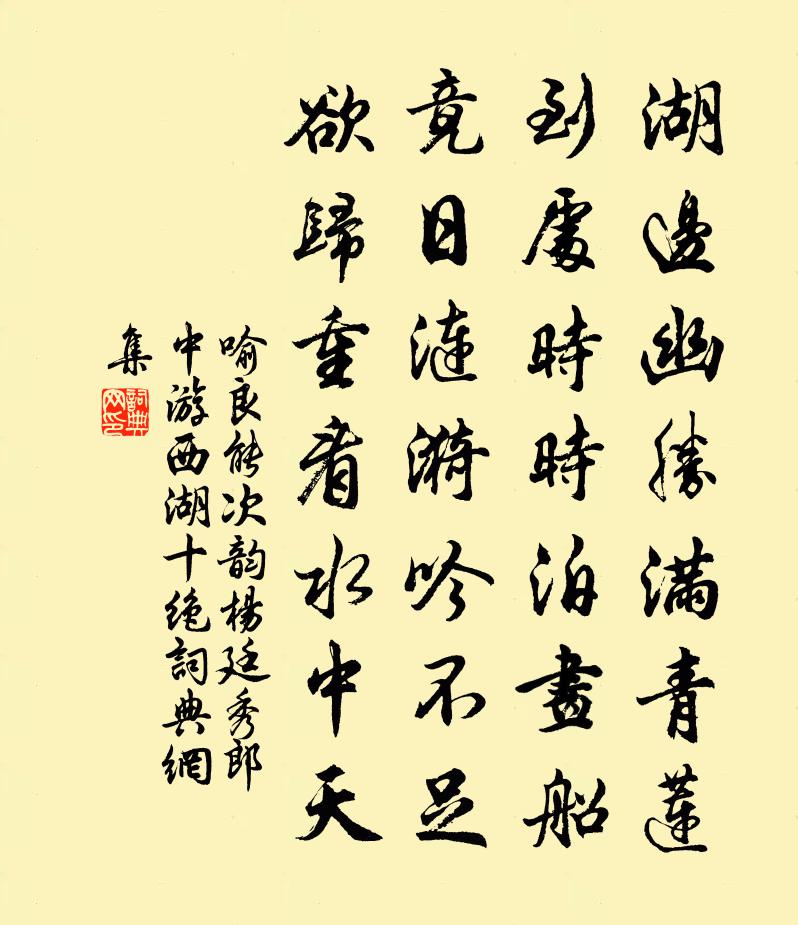 湖邊幽勝滿青蓮
到處時時泊畫船
竟日漣漪吟不足
欲歸重看水中天
喻良能次韵楊廷秀郎
中游西湖十绝詞典網
集
詞典
网印